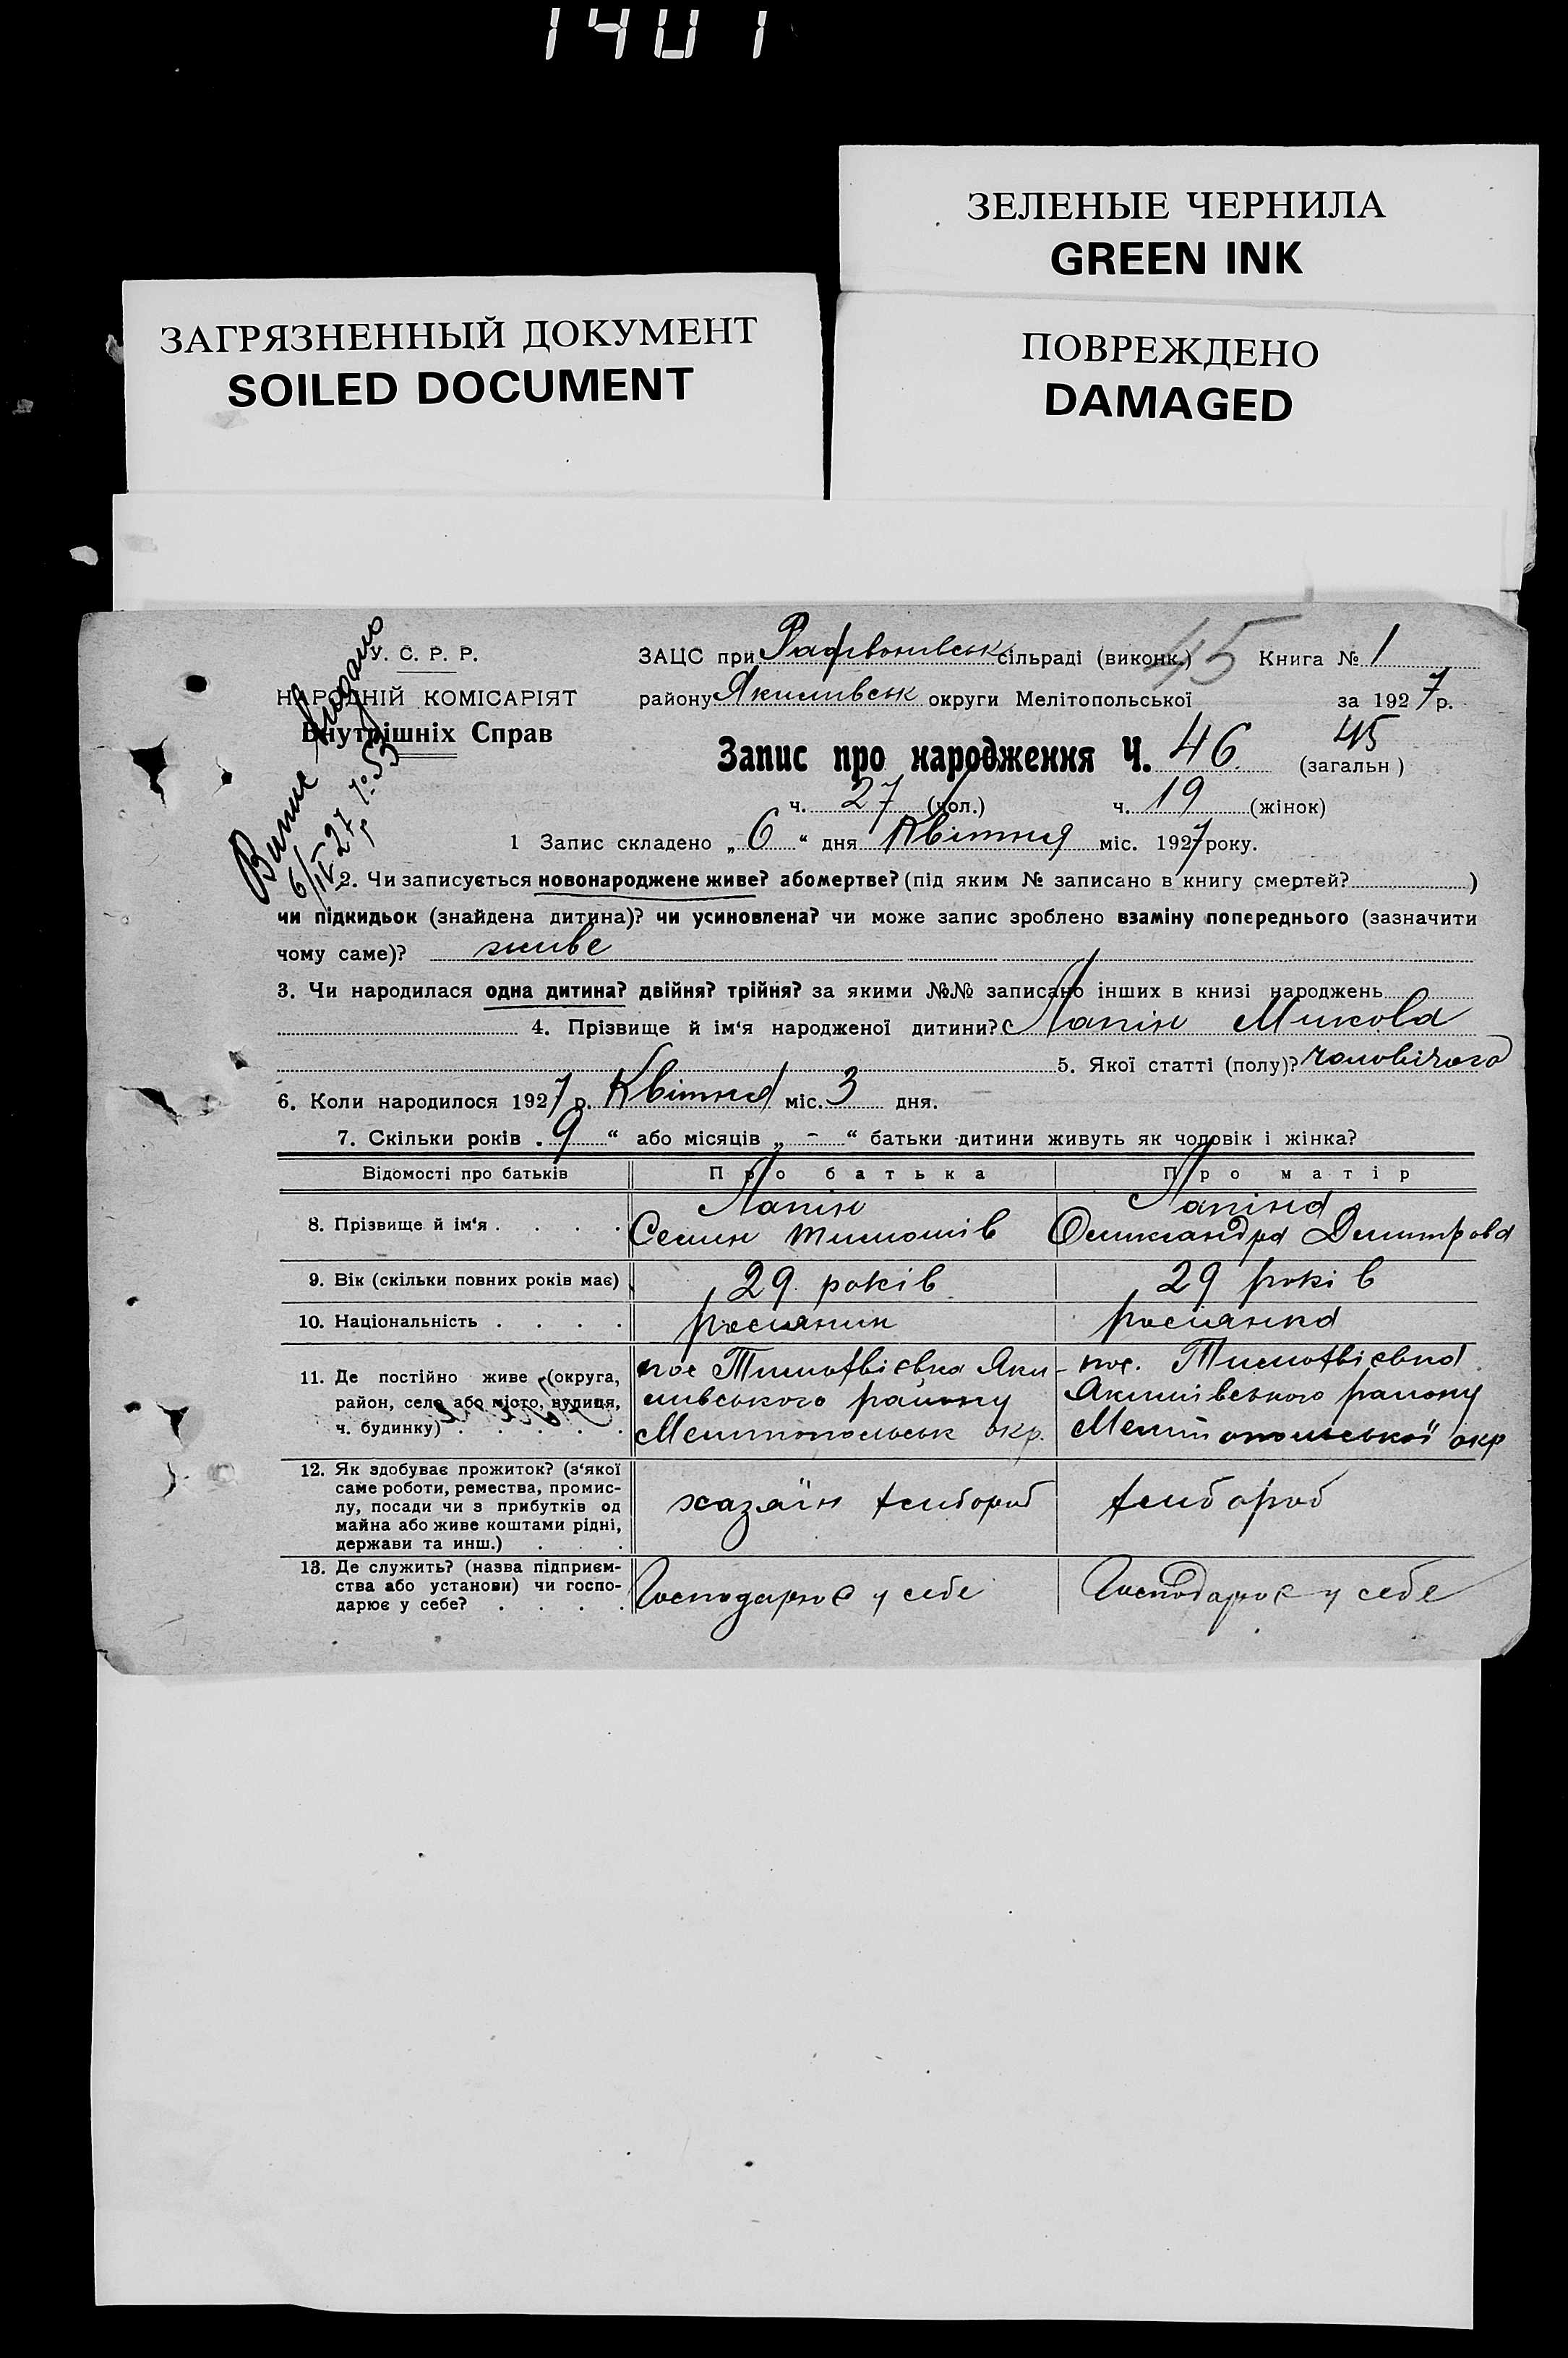 1401
ЗЕЛЕНЫЕ ЧЕРНИЛА
GREEN INK
ЗАГРЯЗНЕННЫЙ ДОКУМЕНТ
SOILED DOCUMENT
ПОВРЕЖДЕНО
DAMAGED
У. С. Р. Р.
НАРОДНІЙ КОМІСАРІЯТ
Внутрішніх Справ
6/IV 27 р
ЗАЦС при сільраді (виконк.) 45 Книга № 1
району Якимівськ округи Мелітопольської за 1927 р.
Запис про народження Ч. 46 45 (загальн)
ч. 27 (чол.) ч. 19 (жінок)
1 Запис складено „ 6 “ дня Квітня міс. 1927 року.
2. Чи записується новонароджене живе? або мертве? (під яким № записано в книгу смертей? )
чи підкидьок (знайдена дитина)? чи усиновлена? чи може запис зроблено взаміну попереднього (зазначити
чому саме)? живе
3. Чи народилася одна дитина? двійня? трійня? за якими №№ записано інших в книзі народжень
4. Прізвище й ім‘я народженої дитини? Лапін Микола
5. Якої статті (полу)? чоловічого
6. Коли народилося 1927 р. Квітня міс. 3 дня.
7. Скільки років „ 9 “ або місяців „ - “ батьки дитини живуть як чоловік і жінка?
Відомості про батьків Про батька Про матір
8. Прізвище й ім‘я . . . . Лапін Лапіна
Семен Тимошів Олександра Дмитрова
9. Вік (скільки повних років має) 29 років 29 років
10. Національність . . . . росіянин росіянка
11. Де постійно живе (округа, пос Тимофвієвка Яки- пос. Тимофвієвка
район, село або місто, вулиця, мивського району Якимівського району
ч. будинку) . . . . . Мелитопольськ окр. Мелітопольської окр
12. Як здобуває прожиток? (з‘якої
саме роботи, ремества, промис-
лу, посади чи з прибутків од хазяїн хлибороб хлибороб
майна або живе коштами рідні,
держави та инш.) . . .
13. Де служить? (назва підприєм-
ства або установи) чи госпо- Господарює у себе Господарює у себе
дарює у себе? . . . .